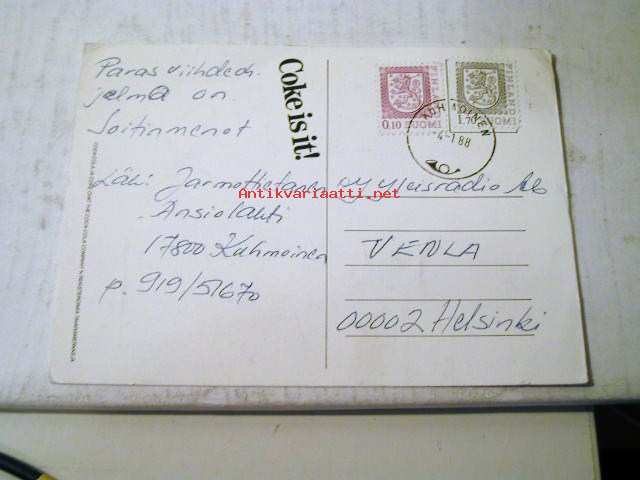 Paras viihdeoh.
jelma on
Soitinmenot
Läh: Jarmo
Ansiolahti
17800 Kuhmoinen
p. 919/51670
Coke is it!
0.10 SUOMI FINLAND
1.70 SUOMI FINLAND
KUHMOINEN
-4-1 88
OY Yleisradio Ab
VENLA
00002 Helsinki
Antikvariaatti.net